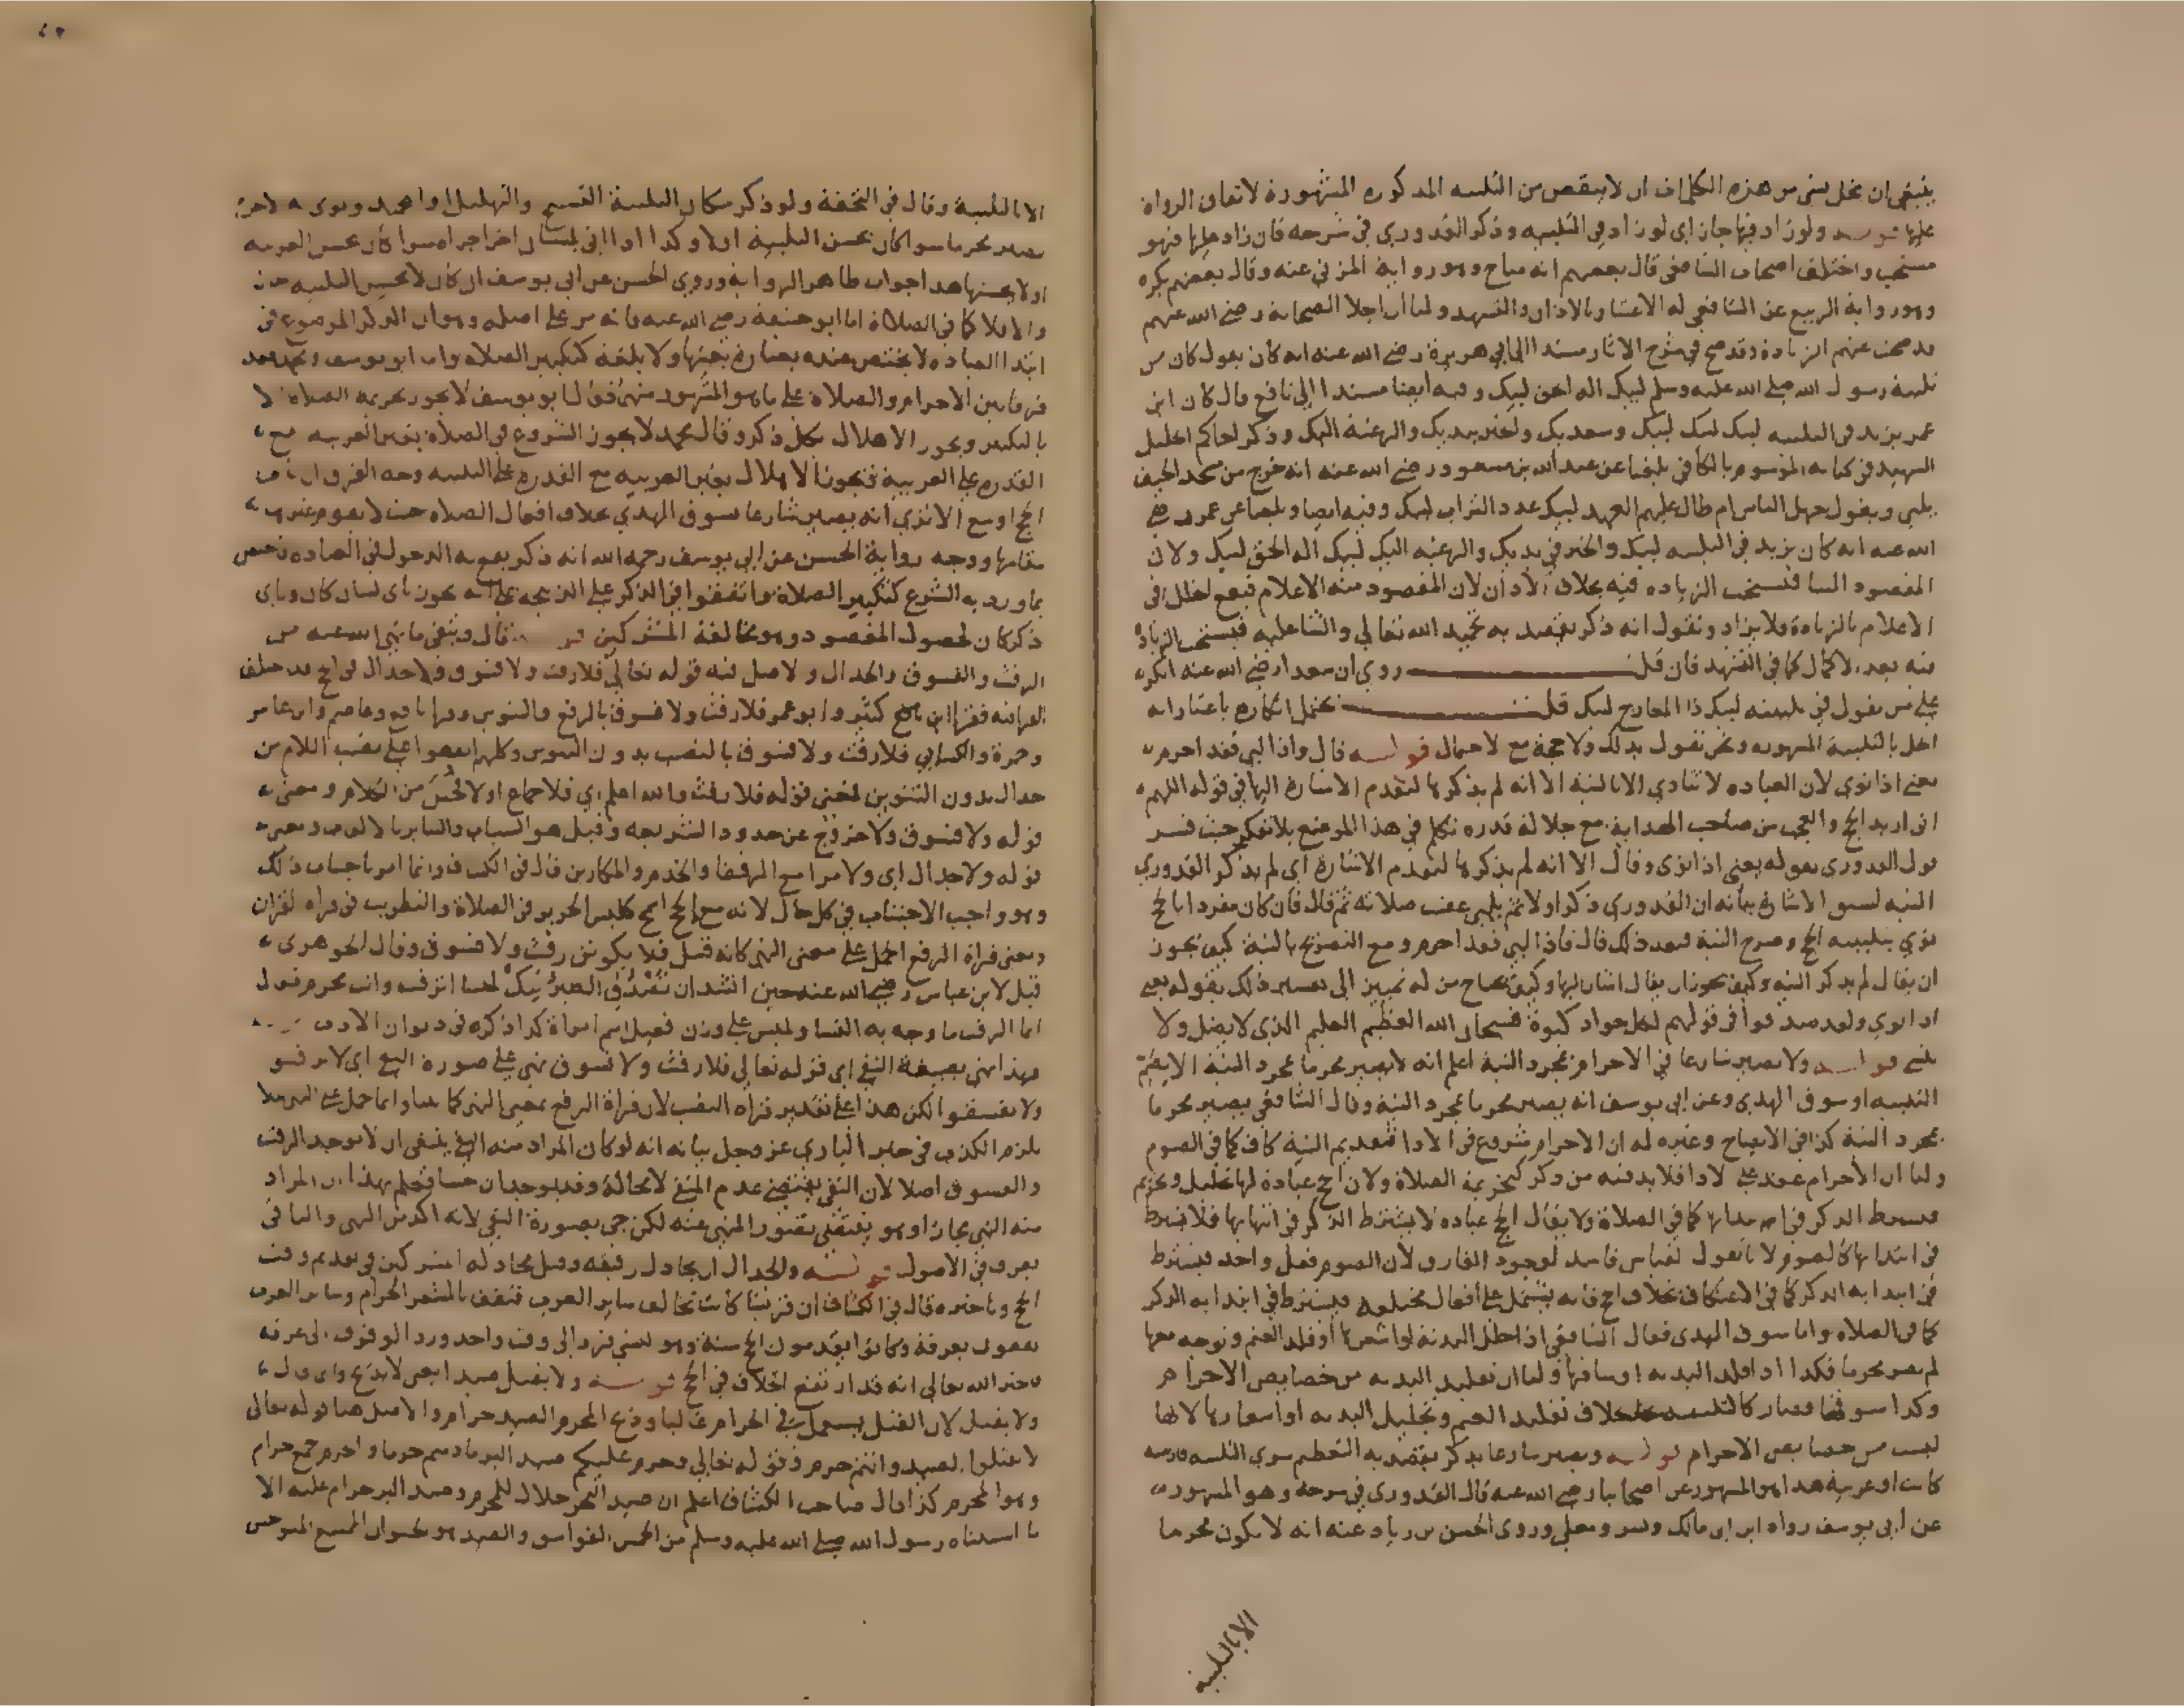 ينبغي ان يخل بشي من هذه الكلمات ان لا ينقص من التلبيه المذكوره المشهورة لاتفاق الرواه
عليها قوله ولو زاد فيها جاز اي لو زاد في التلبيه وذكر القدوري في شرحه فان زاد عليها فهو
مستحب واختلف اصحاب الشافعي قال بعضهم انه مباح وهو رواية المزني عنه وقال بعضهم يكره
وهو رواية الربيع عن الشافعي له الاعتبار بالاذان والتشهد ولنا ان اجلا الصحابه رضي الله عنهم
قد صحت عنهم الزيادة وقد صح في شرح الاثار مسندا الى ابي هريرة رضي الله عنه انه كان يقول كان من
تلبية رسول الله صلى الله عليه وسلم لبيك اله الحق لبيك وفيه ايضا مسندا الى نافع قال كان ابن
عمر يزيد في التلبيه لبيك لبيك لبيك وسعديك والخير بيديك والرغبة اليك وذكر الحاكم الجليل
الشهيد في كتابه الموسوم بالكافي بلغنا عن عبد الله بن مسعود رضي الله عنه انه خرج من مسجد الخيف
يلبي ويقول جهل الناس ام طال عليهم العهد لبيك عدد التراب لبيك وفيه ايضا وبلغنا عن عمر رضي
الله عنه انه كان يزيد في التلبيه لبيك والخير في يديك والرغبه اليك لبيك اله الحق لبيك ولان
المقصود الثنا فتستحب الزياده فيه بخلاف الاذان لان المقصود منه الاعلام فيقع الخلل في
الاعلام بالزيادة فلا يزاد ونقول انه ذكر يقصد به تمجيد الله تعالي والثنا عليه فيستحب الزيادة
فيه بعد الاكمال كما في التشهد فان قلت روي ان سعدا رضي الله عنه انكر
على من يقول في تلبيته لبيك ذا المعارج لبيك قلت يحتمل انكاره باعتبار انه
اخل بالتلبية المشهوره ونحن نقول بذلك ولا حجة مع الاحتمال قوله قال واذا لبى فقد احرم
يعني اذا نوى لان العباده لا تتادى الا بالنية الا انه لم يذكرها لتقدم الاشارة اليها في قوله اللهم
اني اريد الحج والعجب من صاحب الهداية مع جلالة قدره تكلم في هذا الموضع بلا تفكير حيث فسر
قول القدوري بقوله يعني اذا نوى وقال الا انه لم يذكرها لتقدم الاشارة اي لم يذكر القدوري
النيه لسبق الاشارة بيانه ان القدوري ذكر اولا ثم يلبي عقيب صلاته ثم قال فان كان مفردا بالحج
نوي بتلبيته الحج وصرح النية فبعد ذلك قال فاذا لبي فقد احرم ومع التصريح بالنية كيف يجوز
ان يقال لم يذكر النيه وكيف يجوز ان يقال اشار اليها وكيف يحتاج من له تمييز الى تفسير ذلك بقوله يعني
اذا نوي ولقد صدقوا في قولهم لكل جواد كبوة فسبحان الله العظيم العليم الذي لا يضل ولا
ينسى قوله ولا يصير شارعا في الاحرام بمجرد النية اعلم انه لا يصير محرما بمجرد النية الا بضم
التلبيه او سوق الهدي وعن ابي يوسف انه يصير محرما بمجرد النية وقال الشافعي يصير محرما
بمجرد النية كذا في الايضاح وغيره له ان الاحرام شروع في الاداء فتقديم النية كاف كما في الصوم
ولنا ان الاحرام عقد على الادا فلا بد فيه من ذكر كتحريمة الصلاة ولان الحج عبادة لها تحليل وتحريم
فيشترط الذكر في ابتدائها كما في الصلاة ولا يقال الحج عباده لا يشترط الذكر في انتهائها فلا يشترط
في ابتدائها كالصوم لانا نقول القياس فاسد لوجود الفارق لان الصوم فعل واحد فيشترط
في ابتدائه الذكر كما في الاعتكاف بخلاف الحج فانه يشتمل على افعال مختلفه فيشترط في ابتدائه الذكر
كما في الصلاة واما سوق الهدي فقال الشافعي اذا جلل البدنة او اشعرها او قلد الغنم وتوجه معها
لم يصر محرما فكذا اذا قلد البدنه وساقها ولنا ان تقليد البدنه من خصايص الاحرام
وكذا سوقها فصار كالتلبيه بخلاف تقليد الغنم وتجليل البدنه او اشعارها لانها
ليست من خصايص الاحرام قوله ويصير شارعا بذكر يقصد به التعظيم سوي التلبيه فارسيه
كانت او عربية هذا هو المشهور عن اصحابنا رضي الله عنه قال القدوري في شرحه وهو المشهور
عن ابي يوسف رواه ابن ابي مالك وبشر ومعلى وروى الحسن بن زياد عنه انه لا يكون محرما
الا بالتلبية
الا بالتلبية وقال في التحفة ولو ذكر مكان التلبية التسبيح والتهليل والتحميد ونوى به الاحرام
يصير محرما سوا كان يحسن التلبية اولا وكذا اذا اتى بلسان اخر اجزاه سوا كان يحسن العربيه
او لا يحسنها هذا جواب ظاهر الرواية وروي الحسن عن ابي يوسف ان كان لا يحسن التلبيه جاز
والا فلا كما في الصلاة اما ابو حنيفة رضي الله عنه فانه مر على اصله وهو ان الذكر الموضوع في
ابتدا العباده لا يختص عنده بعبارة بعينها ولا بلغة كتكبير الصلاه واما ابو يوسف ومحمد فقد
فرقا بين الاحرام والصلاة على ما هو المشهور منهم فقال ابو يوسف لا يجوز تحريمه الصلاه الا
بالتكبير ويجوز الاهلال بكل ذكر وقال محمد لا يجوز الشروع في الصلاة بغير العربيه مع
القدره على العربية فيجوز الاهلال بغير العربيه مع القدره على التلبيه وجه الفرق ان باب
الحج اوسع الا تري انه يصير شارعا بسوق الهدي بخلاف افعال الصلاه حيث لا يقوم غيرها
مقامها ووجه رواية الحسن عن ابي يوسف رحمه الله انه ذكر يقع به الدخول في العباده فيختص
بما ورد به الشرع كتكبير الصلاة واتفقوا في الذكر على الذبيحه على انه يجوز باي لسان كان وباي
ذكر كان لحصول المقصود وهو مخالفة المشركين قوله قال ويتقي ما نهى الله عنه من
الرفث والفسوق والجدال والاصل فيه قوله تعالي فلا رفث ولا فسوق ولا جدال في الحج قد اختلف
القراء فيه فقرا ابن كثير وابو عمرو فلا رفث ولا فسوق بالرفع والتنوين وقرا نافع وعاصم وابن عامر
وحمزة والكسايي فلا رفث ولا فسوق بالنصب بدون التنوين وكلهم اتفقوا على نصب اللام من
جدال بدون التنوين لمعنى قوله فلا رفث والله اعلم اي فلا جماع اولا فحش من الكلام ومعنى
قوله ولا فسوق ولا خروج عن حدود الشريعه وقيل هو السباب والتنابز بالالقاب ومعنى
قوله ولا جدال اي ولا مرا مع الرفقا والخدم والمكارين قال في الكشاف وانما امر باجتناب ذلك
وهو واجب الاجتناب في كل حال لانه مع الحج اسمج كلبس الحرير في الصلاة والتطريب في قراه القران
ومعنى قراة الرفع الحمل على معنى النهي كانه قيل فلا يكونن رفث ولا فسوق وقال الجوهري
قيل لابن عباس رضي الله عنه حين انشد ان تصدق الطير ننك لميسا اترفث وانت محرم فقال
انما الرفث ما وجه به النسا ولميس على وزن فعيل اسم امراة كذا ذكره في ديوان الادب
فهذا نهي بصيغة النفي اي قوله تعالي فلا رفث ولا فسوق نهي على صورة النفي اي لا ترفثوا
ولا تفسقوا لكن هذا على تقدير قراه النصب لان قراة الرفع بمعنى النهي كما بينا وانما حمل على النهي لئلا
يلزم الكذب في خبر الباري عز وجل بيانه انه لو كان المراد منه النفي ينبغي ان لا يوجد الرفث
والفسوق اصلا لان النفي يقتضي عدم المنفي لا محالة وقد يوجدان حسا فعلم بهذا ان المراد
منه النهي مجازا وهو يقتضي تصور المنهي عنه لكن جي بصورة النفي لانه اكد من النهي والباقي
يعرف في الاصول قوله والجدال ان يجادل رفيقه وقيل مجادلة المشركين في تقديم وقت
الحج وتاخيره قال في الكشاف ان قريشا كانت تخالف ساير العرب فتقف بالمشعر الحرام وساير العرب
يقفون بعرفة وكانوا يقدمون الحج سنة وهو النسي فرد الى وقت واحد ورد الوقوف الى عرفه
فاخبر الله تعالي انه قد ارتفع الخلاف في الحج قوله ولا يقتل صيدا يعني لا يذبح وانما قال
ولا يقتل لان القتل يستعمل في الحرام غالبا وذبح المحرم الصيد حرام والاصل هنا قوله تعالى
لا تقتلوا الصيد وانتم حرم وقوله تعالي وحرم عليكم صيد البر ما دمتم حرما والحرم جمع حرام
وهو المحرم كذا قال صاحب الكشاف اعلم ان صيد البحر حلال للمحرم وصيد البر حرام عليه الا
ما استثناه رسول الله صلى الله عليه وسلم من الخمس الفواسق والصيد هو الحيوان الممتنع المتوحش